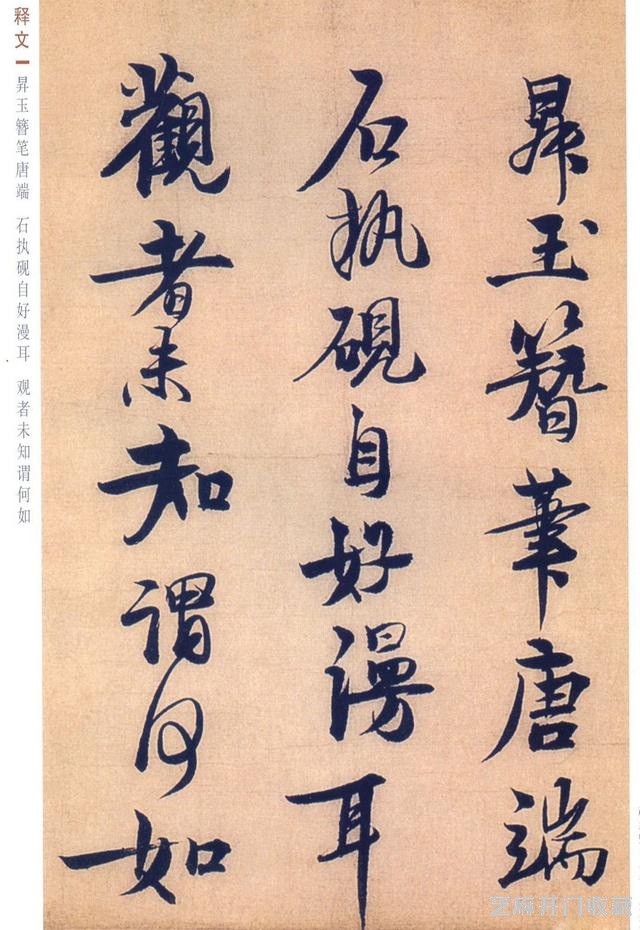 释文
昇玉簪笔唐端 石执砚自好漫耳 观者未知谓何如
昇玉簪筆唐端
石执硯自好漫耳
觀者未知謂何如
艺麻开门收藏